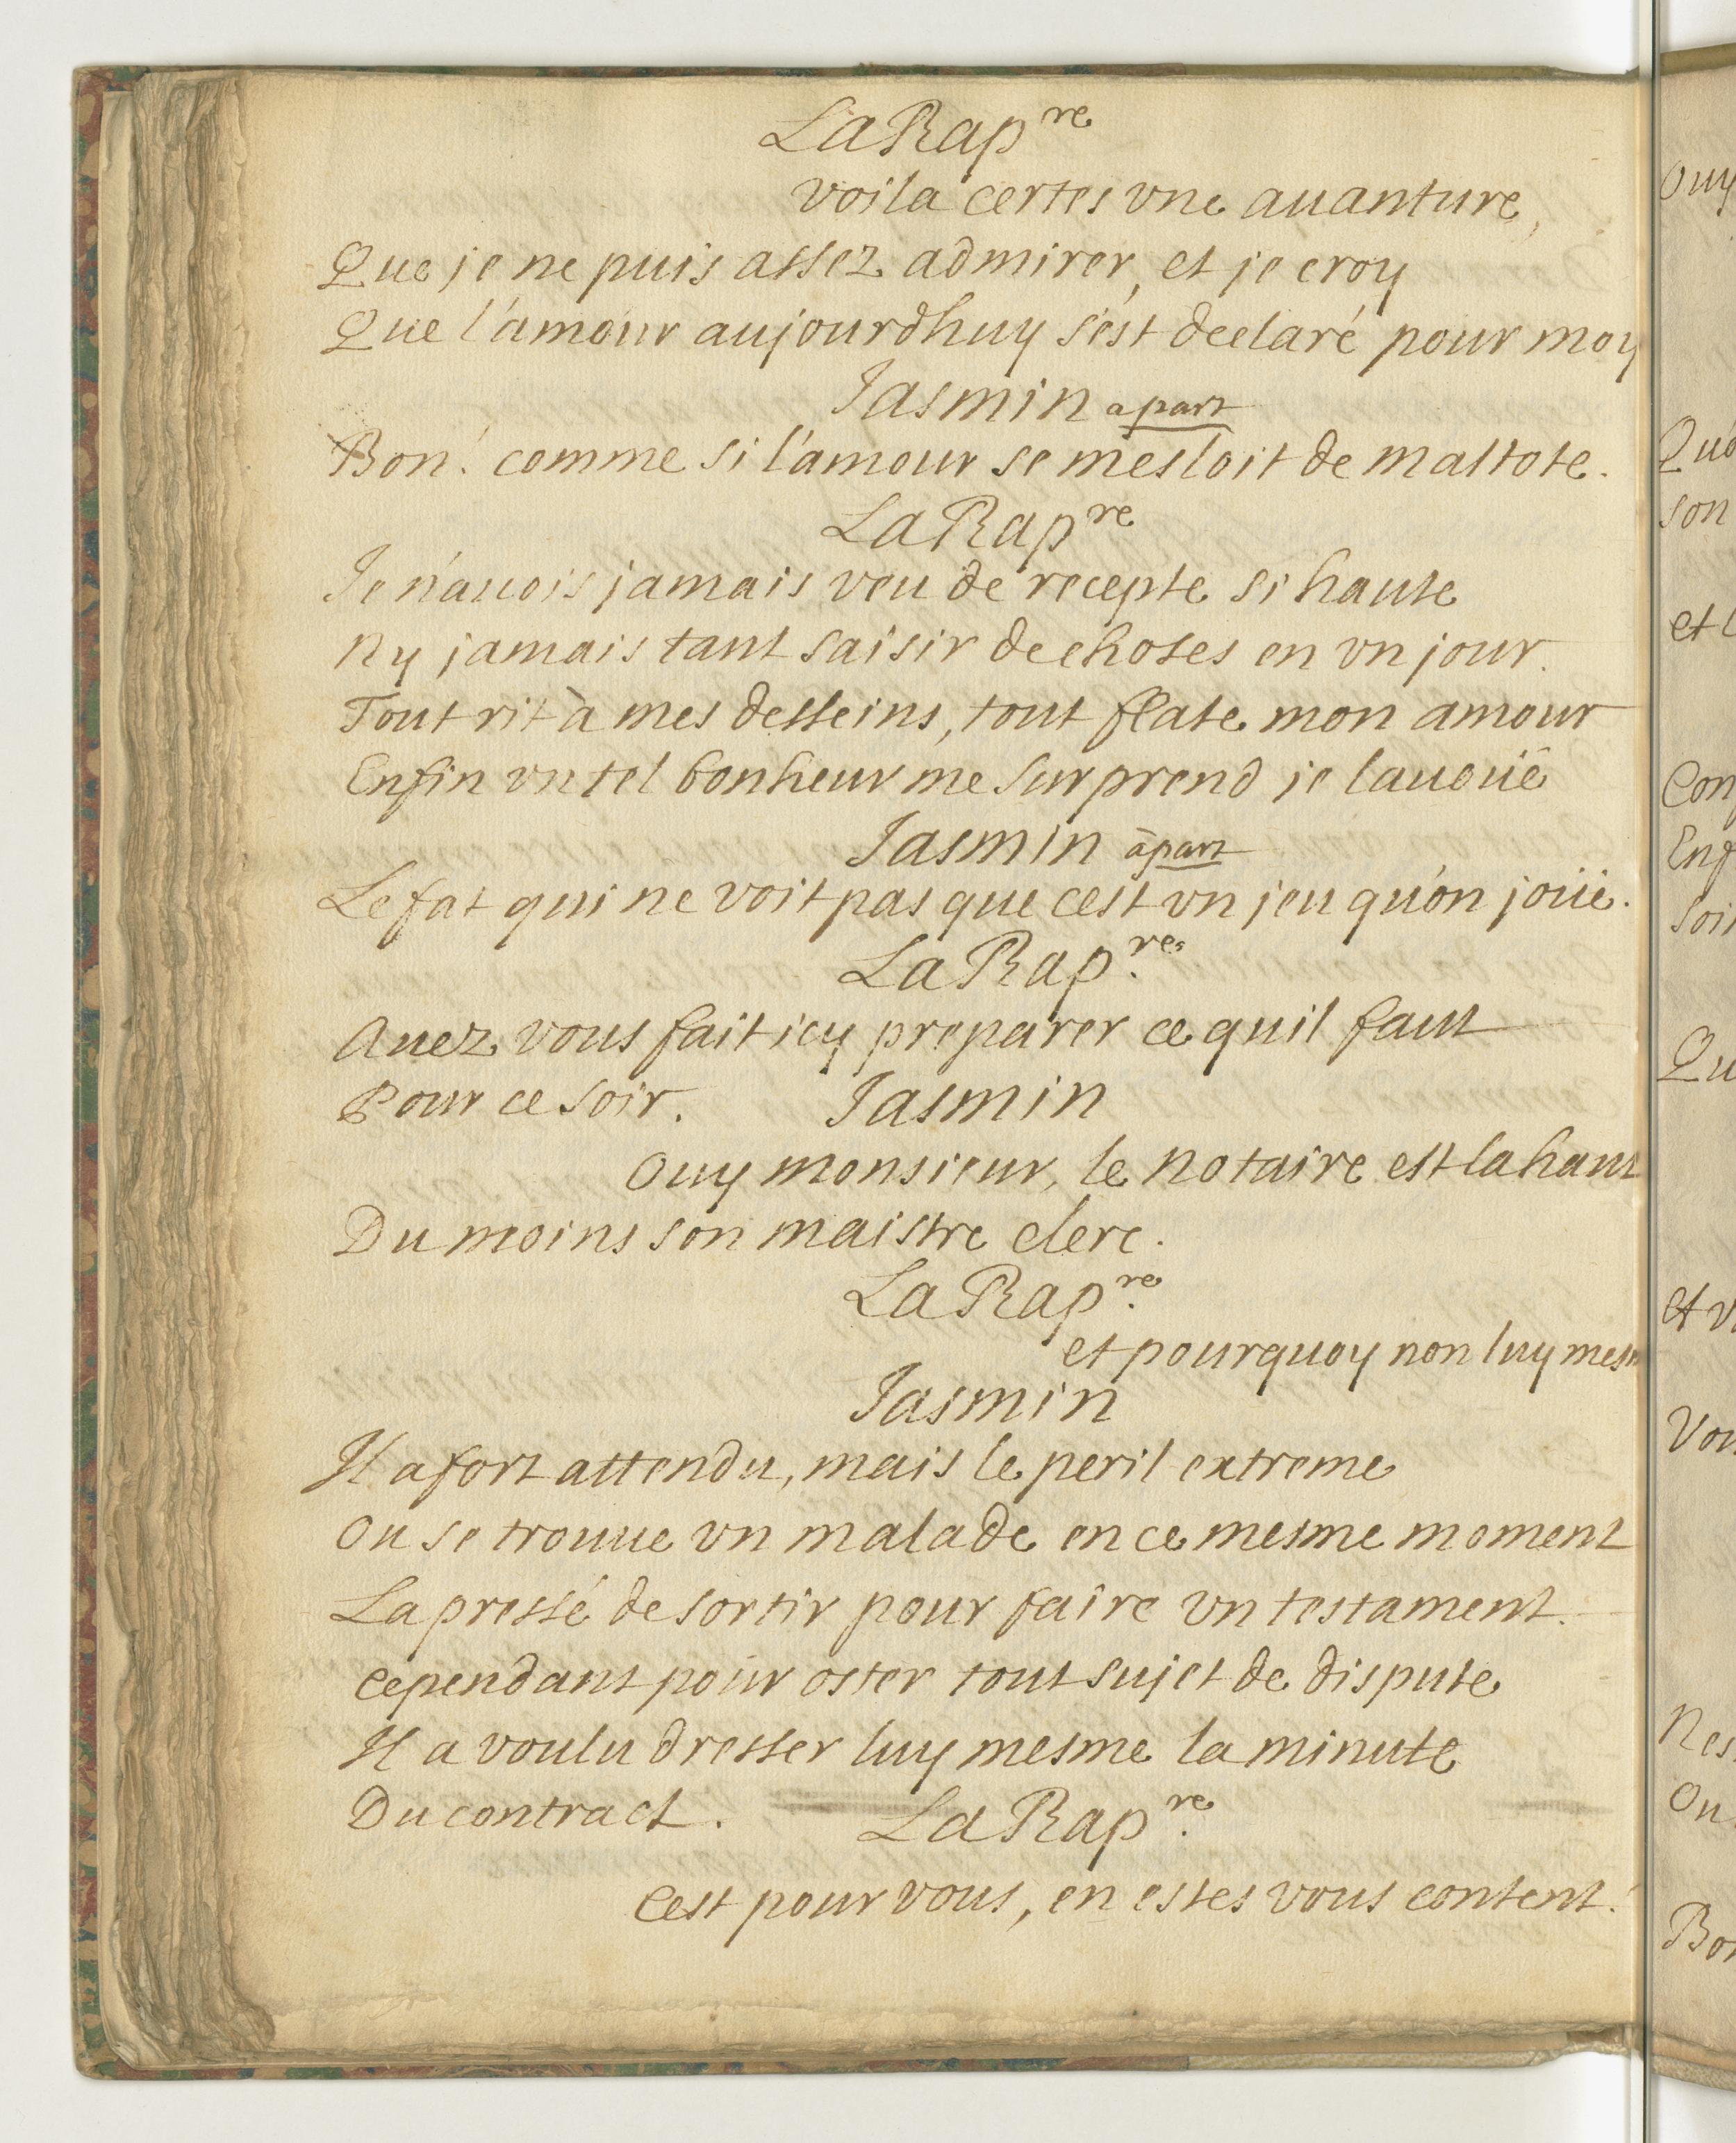 La Rap^re
voila certes vne auanture,
Que je ne puis assez admirer, et je croy
Que l'amour aujourdhuy s'est declaré pour moy
Jasmin apart
Bon! comme si l'amour se mesloit de maltote.
La Rap^re
Je n'auois jamais veu de recepte si haute
Ny jamais tant saisir de choses en vn jour.
Tout rit à mes desseins, tout flate mon amour
Enfin vn tel bonheur me surprend je lauoüe
Jasmin àpart
Le fat qui ne voit pas que cest vn jeu qu'on joüe.
La Rap.^re
Auez vous fait icy preparer ce quil faut
Pour ce soir. Jasmin
Ouy monsieur, le notaire est la haut
Du moins son maistre clerc.
La Rap.^re
et pourquoy non luy mesm
Jasmin
Il a fort attendu, mais le peril extreme
Ou se trouue vn malade en ce mesme moment
La pressé de sortir pour faire vn testament.
cependant pour oster tout sujet de dispute
Il a voulu dresser luy mesme la minute
Du contract. La Rap.^re
Cest pour vous, en estes vous content!
Ouy
Qu'o
son
et l
Con
Enf
Soi
Qu
et v
Vou
Nes
Ou
Bo